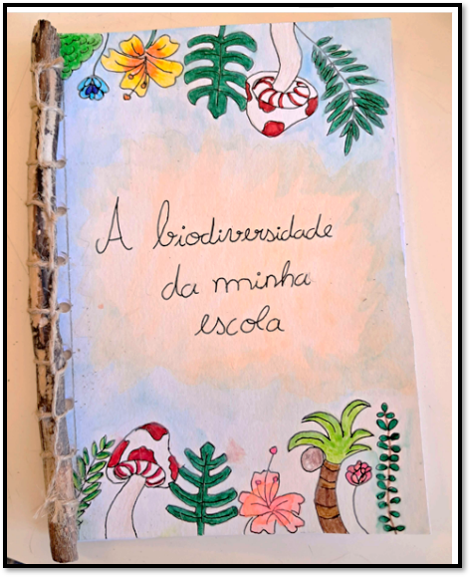 A biodiversidade
da minha
escola